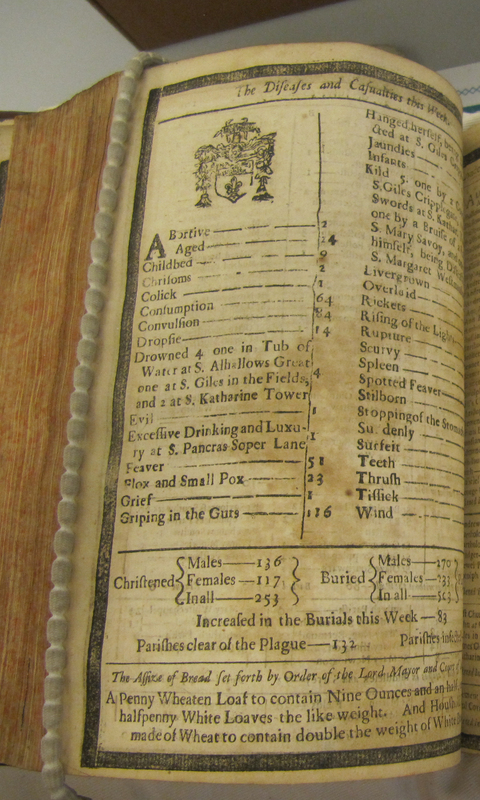 The Diseases and Casualties this Week.
ABortive — 2
Aged — 24
Childbed — 9
Chrisoms — 2
Colick — 1
Consumption — 64
Convulsion — 84
Dropsie — 14
Drowned 4 one in Tub of
Water at S. Alhallows Great
one at S. Giles in the Fields, 4
and 2 at S. Katharine Tower
Evil — 1
Excessive Drinking and Luxu-
ry at S. Pancras Soper Lane 1
Feaver — 51
Flox and Small Pox — 23
Grief — 1
Griping in the Guts — 116
Hanged herself, being
at S. Giles
Jaundies —
Infants —
Kild 5. one by a
S. Giles Cripplegate
Swords at S. Kathar
one by a Bruise
S. Mary Savoy, and
himself, being
S. Margaret
Livergrown —
Overlaid —
Rickets —
Rising of the Lights
Rupture —
Scurvy —
Spleen —
Spotted Feaver —
Stilborn —
Stopping of the Stom
Suddenly —
Surfeit —
Teeth —
Thrush —
Tissick —
Wind —
Christened { Males — 136 Females — 117 In all — 253 }
Buried { Males — 270 Females — 233 In all — 503
Increased in the Burials this Week — 83
Parishes clear of the Plague — 132 Parishes
The Assize of Bread set forth by Order of the Lord Mayor and Court
A Penny Wheaten Loaf to contain Nine Ounces and an half
halfpenny White Loaves the like weight. And
made of Wheat to contain double the weight of White